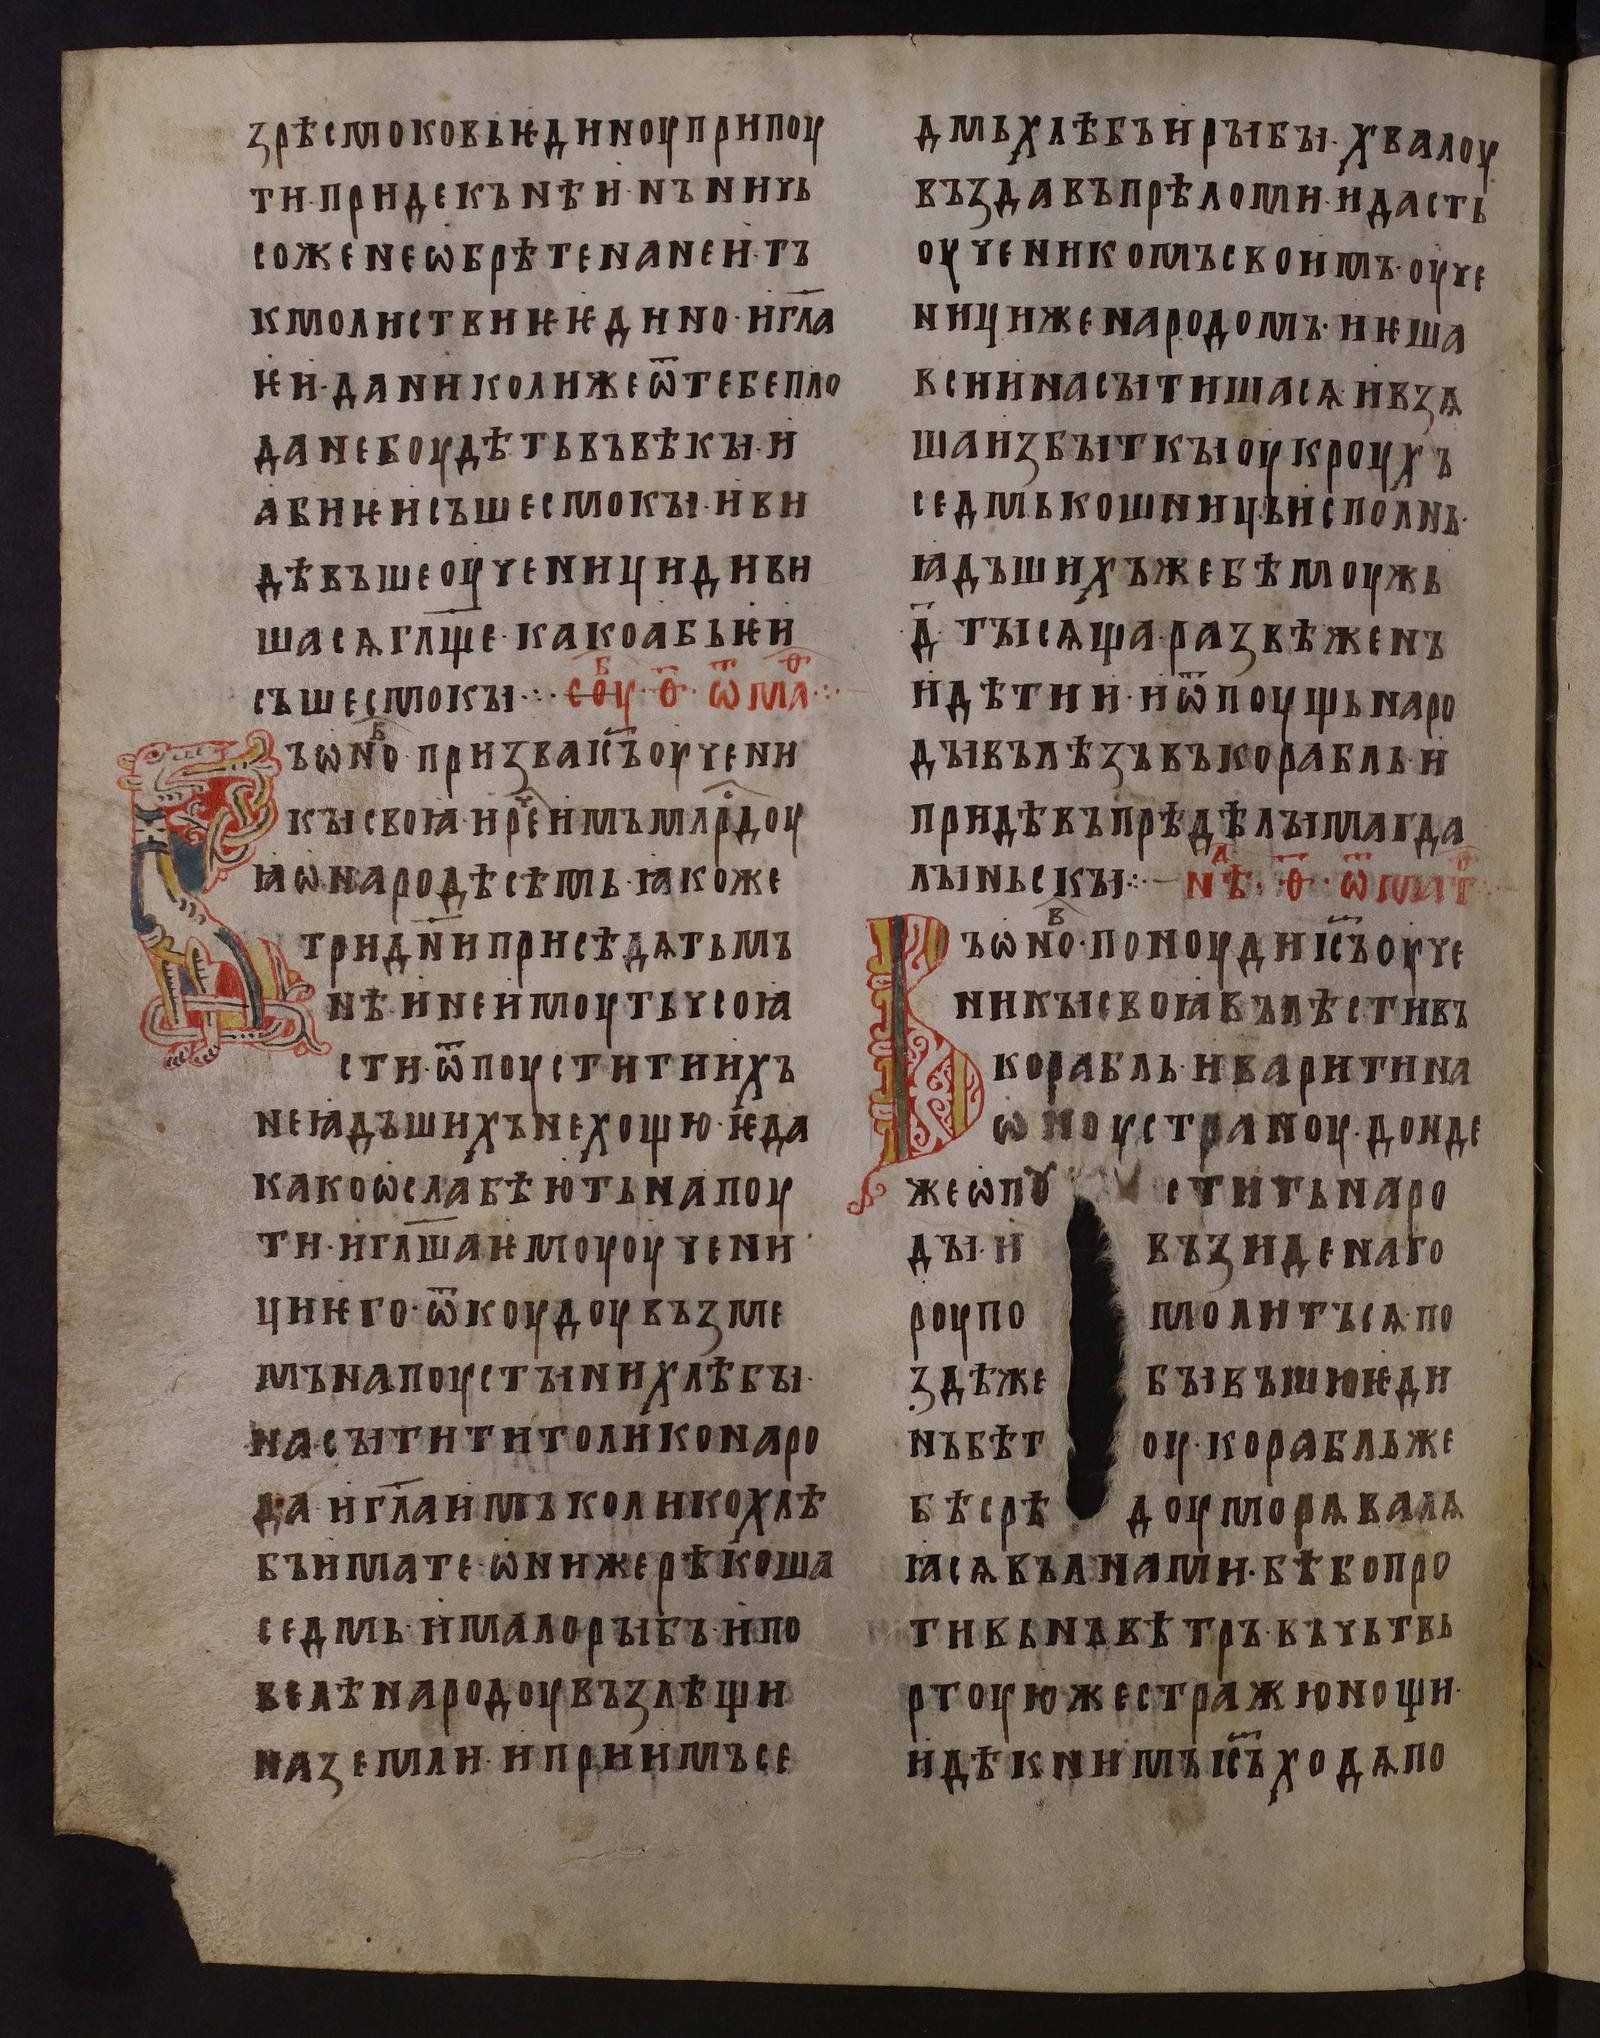 зрѣсмоковьѥдиноуприпоу
ти·придекънѣи·нъничь
соженеѡбрѣтенанеи·тъ
кмолиствиѥѥдино·игл҃а
ѥи·даниколижеѿтебепло
данебоудѣтьвъвѣкы·и
абиѥисъшесмокы·иви
дѣвъшеоученицидиви
шасѧгл҃ще·какоабьѥи
съшесмокы·:· соу҃·ѳ҃·ѿма·:·
ъѡноⷡ·призвавіс҃ъоучени
кысвоꙗ·иреⷱимъмлрⷭдоу
ꙗѡнародѣсѣмь·ꙗкоже
тридн҃иприсѣдѧтьмъ
нѣ·инеимоутьчесоꙗ
сти·ѿпоуститиихъ
неꙗдъшихънехощю·ѥда
какоѡслабѣютьнапоу
ти·игл҃шаѥмоуоучени
циѥго·ѿкоудоувъзме
мънапоустынихлѣбы·
насытититоликонаро
да·игл҃аимъколикохлѣ
бъимате·ѡнижерѣкоша
седмь·ималорыбъ·ипо
велѣнародоувъзлѣщи
наземли·ипріимъсе
дмьхлѣбъирыбы·хвалоу
въздавъпрѣломи·идасть
оученикомъсвоимъ·оуче
нициженародомъ·иѥша
всиинасытишасѧ·ивзѧ
шаизбыткыоукроухъ
седмькошницьисполнь·
ꙗдъшихъжебѣмоужь
·д҃·тысѧща·развѣженъ
идѣтии·иѿпоущьнаро
дывълѣзъвъкорабль·и
придѣвъпрѣдѣлымагда
лыньскы·:·— нѣⷣ·ѳ҃·ѿматⷴ
ъѡноⷡ·поноудиіс҃ъоуче
никысвоꙗвълѣстивъ
корабль·иваритина
ѡноустраноу·донде
жеѡпꙋ ститьнаро
ды·и възиденаго
роупо молитъсѧ·по
здѣже бывъшюѥди
нъбѣт оу·корабльже
бѣсрѣ доуморѧвалѧ
ꙗсѧвълнами·бѣбопро
тивьнъвѣтръ·въчьтвь
ртоуюжестражюнощи·
идѣкнимъіс҃ъходѧпо